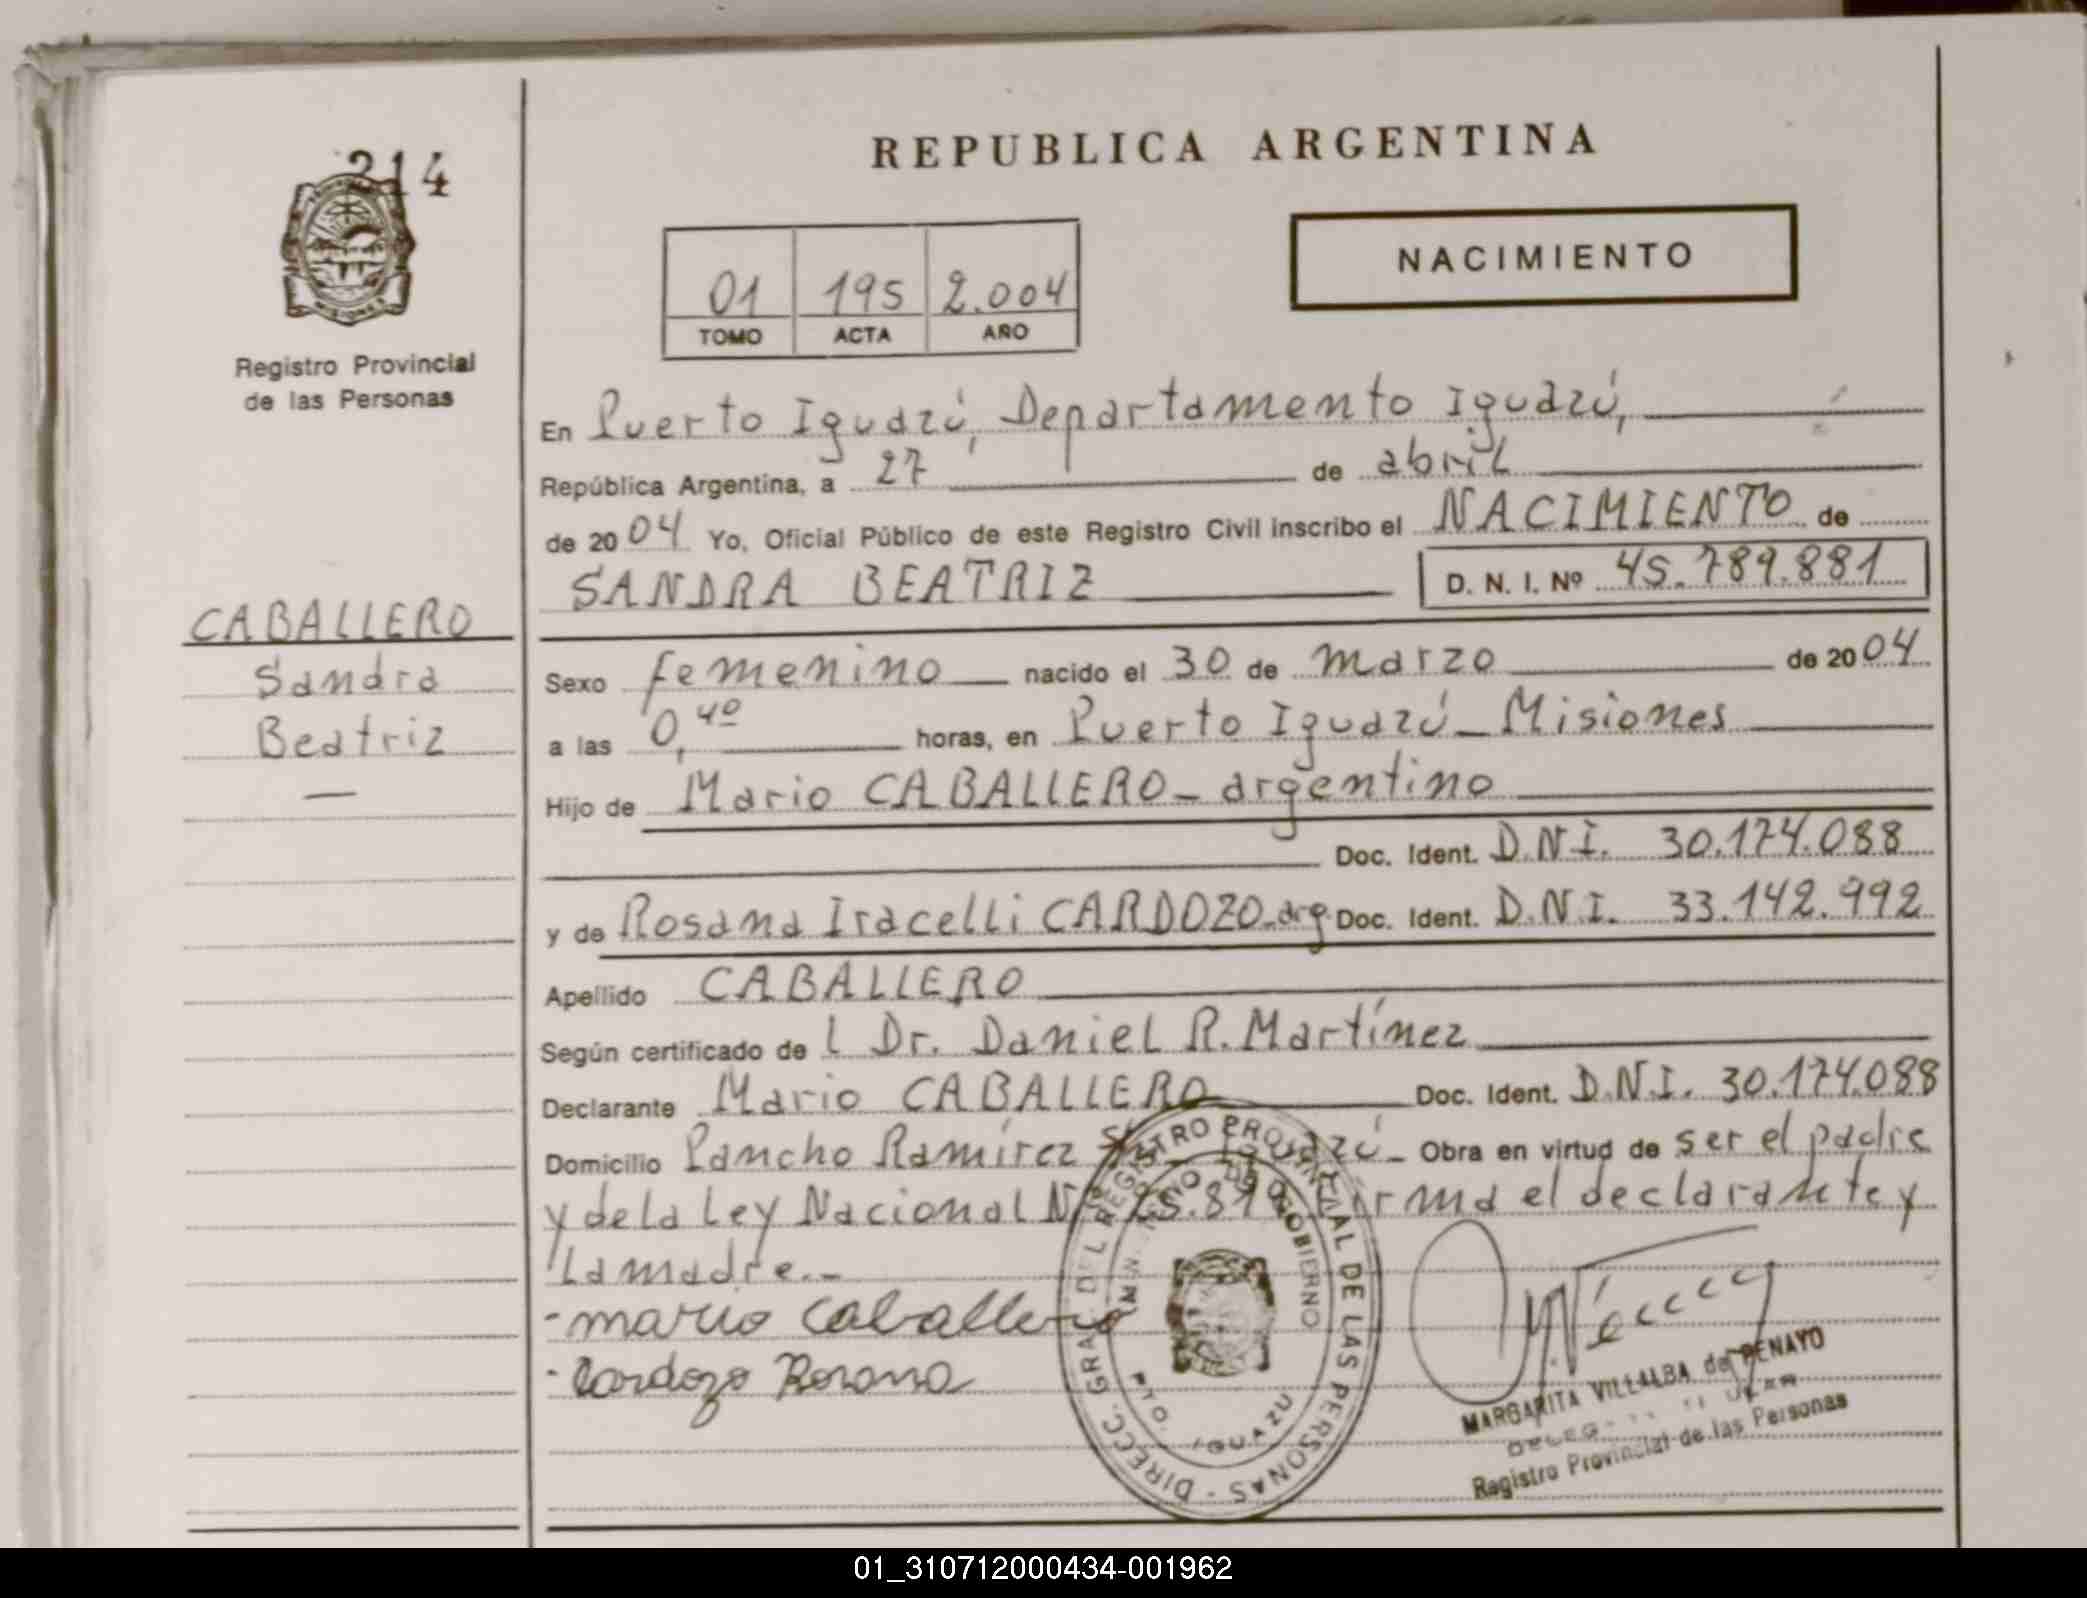 214
REPUBLICA ARGENTINA
NACIMIENTO
01 195 2.004
TOMO ACTA AÑO
Registro Provincial
de las Personas
En Puerto Iguazú, Departamento Iguazú,
República Argentina, a 27 de abril
de 2004 Yo, Oficial Público de este Registro Civil inscribo el NACIMIENTO de
SANDRA BEATRIZ D. N. I. Nº 45.789.881
CABALLERO
Sandra
Beatriz
—
Sexo femenino nacido el 30 de marzo de 2004
a las 0,40 horas, en Puerto Iguazú - Misiones
Hijo de Mario CABALLERO - argentino
Doc. Ident. D.N.I. 30.174.088
y de Rosana Iracelli CARDOZO - arg. Doc. Ident. D.N.I. 33.142.992
Apellido CABALLERO
Según certificado de l Dr. Daniel R. Martínez
Declarante Mario CABALLERO Doc. Ident. D.N.I. 30.174.088
Domicilio Pancho Ramírez Iguazú - Obra en virtud de ser el padre
y de la Ley Nacional Firma el declarante y
la madre.-
- mario Caballero
- Cardozo Rosana
DIRECC. GRAL. DEL REGISTRO PROVINCIAL DE LAS PERSONAS
GOBIERNO
IGUAZU
MARGARITA VILLALBA de PENAYO
Registro Provincial de las Personas
01_310712000434-001962